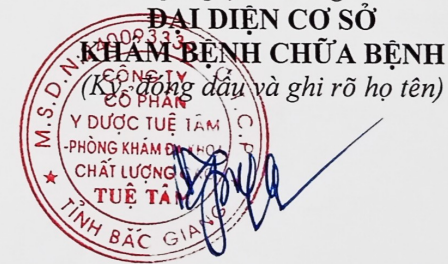 ĐẠI DIỆN CƠ SỞ
KHÁM BỆNH CHỮA BỆNH
(Ký, đóng dấu và ghi rõ họ tên)
M.S.D.N: 2400933
C.T.C.P
CÔNG TY
CỔ PHẦN
Y DƯỢC TUỆ TÂM
-PHÒNG KHÁM ĐA KHOA
CHẤT LƯỢNG
TUỆ TÂM
TỈNH BẮC GIANG